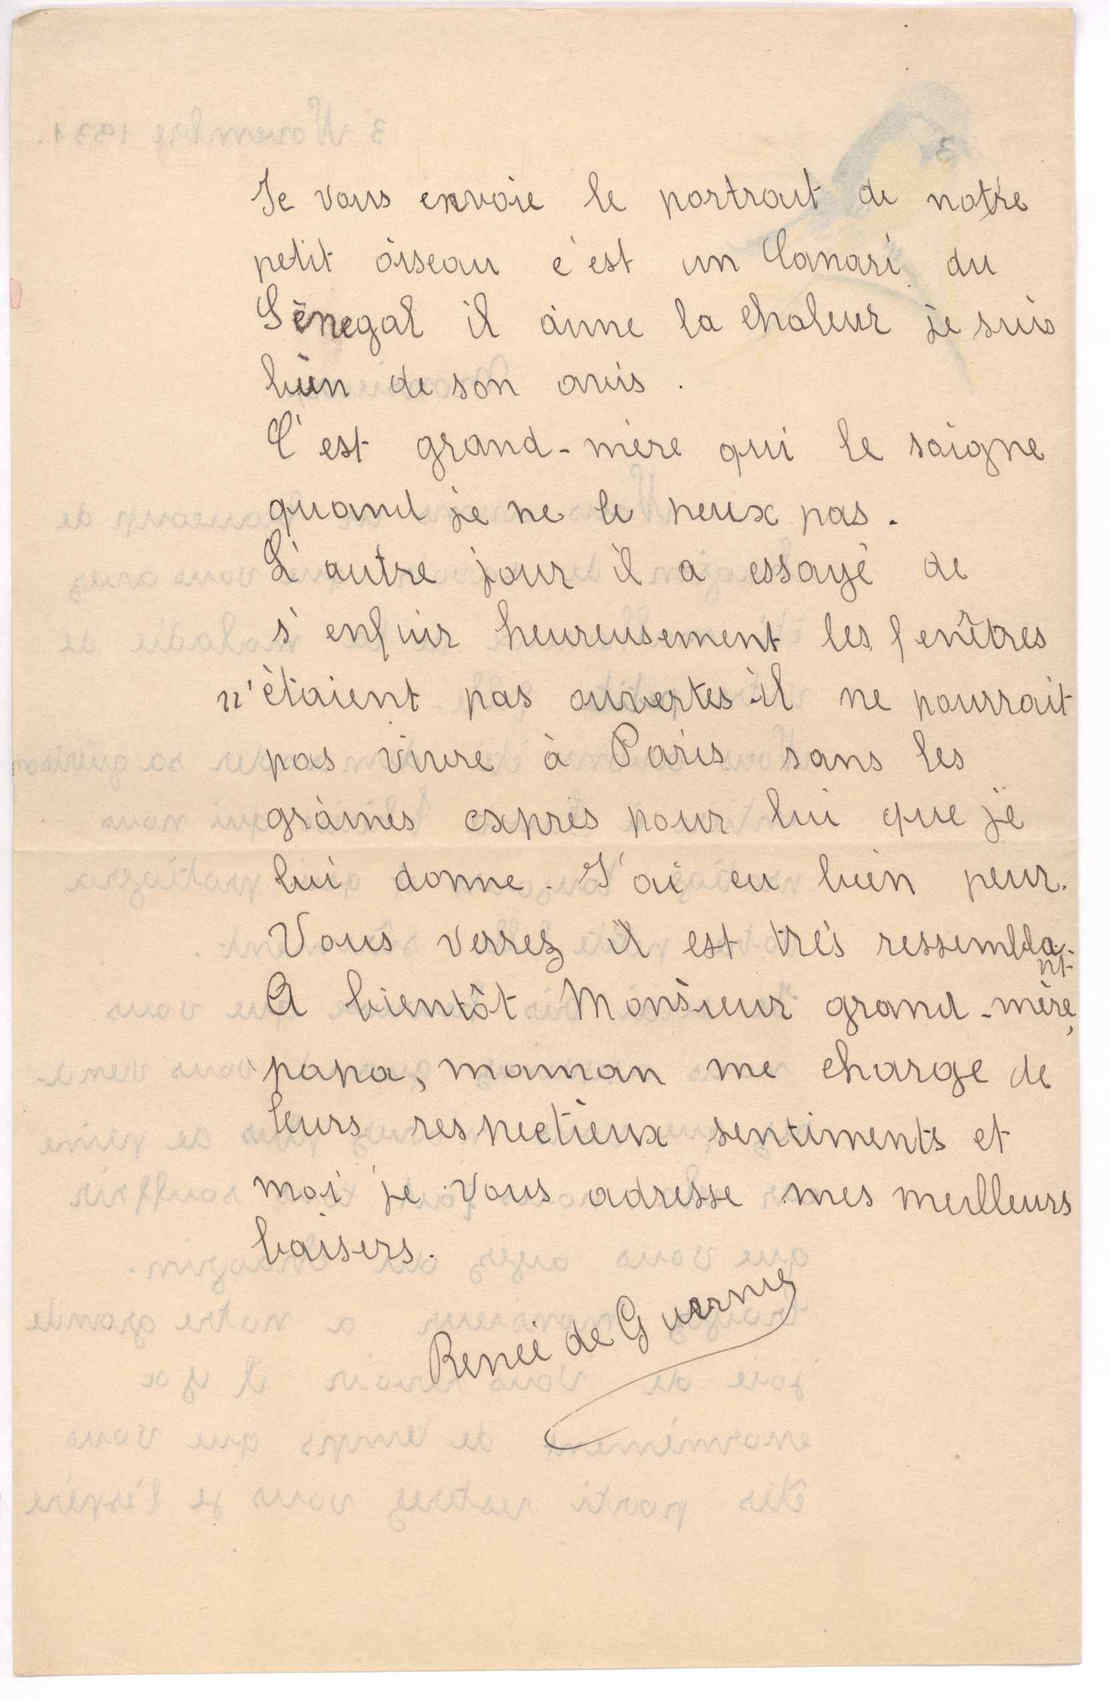 3
Je vous envoie le portrait de notre
petit oiseau c'est un Canari du
Sénegal il aime la chaleur je suis
bien de son avis.
C'est grand-mère qui le soigne
quand je ne le peux pas.
L'autre jour il a essayé de
s'enfuir heureusement les fenêtres
n'étaient pas ouvertes il ne pourrait
pas vivre à Paris sans les
graines exprès pour lui que je
lui donne. J'ai eu bien peur.
Vous verrez il est très ressembla-
nt
A bientôt Monsieur grand-mère,
papa, maman me charge de
leurs respectieux sentiments et
moi je vous adresse mes meilleurs
baisers.
Renée de